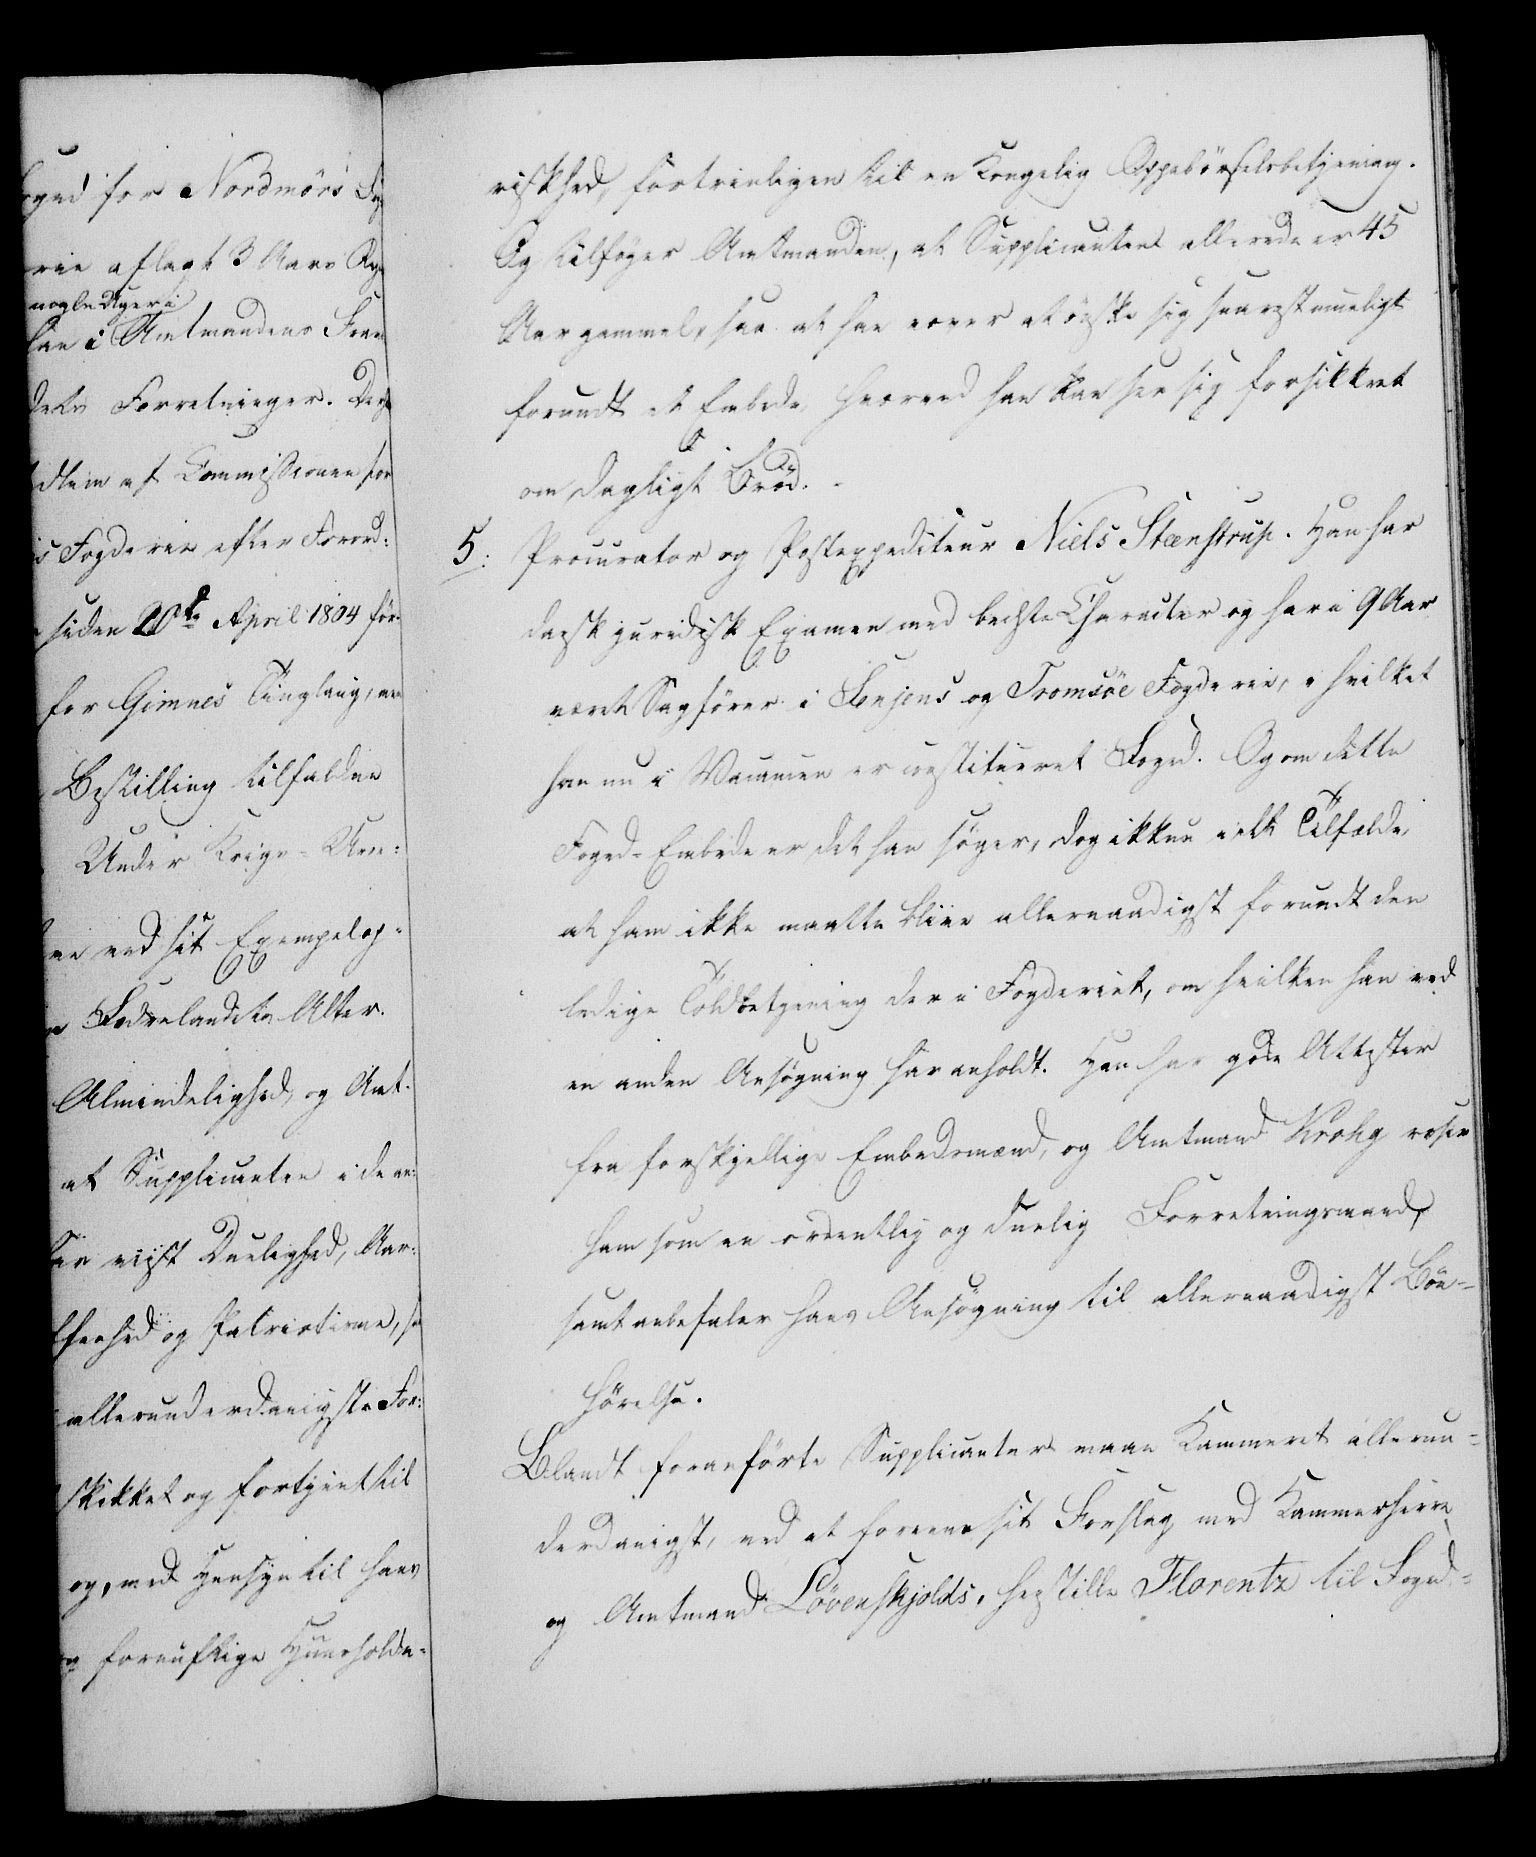 oged for Nordmörs
rie aflagt 3 Aars
nogle Uger i
i Amtmandens
dets Forretninger.
af Commissionen for
Fogderie efter Forord:
siden 20de April 1804 för
for Gimnes Tinglaug,
Bestilling tilfalden
Under Krigs-
ved sit Exempel op-
Fædrelandets Alter.
Almindelighed, og Amt-
at Supplicanten i de
viist Duelighed,
og Patriotisme,
allerunderdanigste For:
skikket og fortjent til
og, med Hensyn til hans
fornuftige Huusholdn-
riskhed, fortrinligen til en Kongelig Oppebörselsbetjening.
Og tilföyer Amtmanden, at Supplicanten allerede er 45
Aar gammel, saa at han maa ønske sig snarest mueligt
forundt et Embede, hvorved han kan see sig forsikkret
om dagligt Bröd.
5. Procurator og Postexpediteur Niels Stenstrup. Han har
dansk juridisk Examen med bedste Character og har i 9 Aar
været Sagförer i Senjens og Tromsöe Fogderie, i hvilket
han nu i Vacancen er constitueret Foged. Og om dette
Foged-Embede er det han söger, dog ikkun i det Tilfælde,
at ham ikke maatte blive allernaadigst forundt den
ledige Toldbetjening der i Fogderiet, om hvilken han ved
en anden Ansögning har anholdt. Han har gode Attester
fra forskjellige Embedsmænd, og Amtmand Krohg roser
ham som en ordentlig og duelig Forretningsmand,
samt anbefaler hans Ansögning til allernaadigst Bön-
hörelse.
Blandt foranförte Supplicanter maae Kammeret allerun-
derdanigst, ved at foreene sit Forslag med Kammerherre
og Amtmand Lövenskjolds, indstille Florentz til Foged-